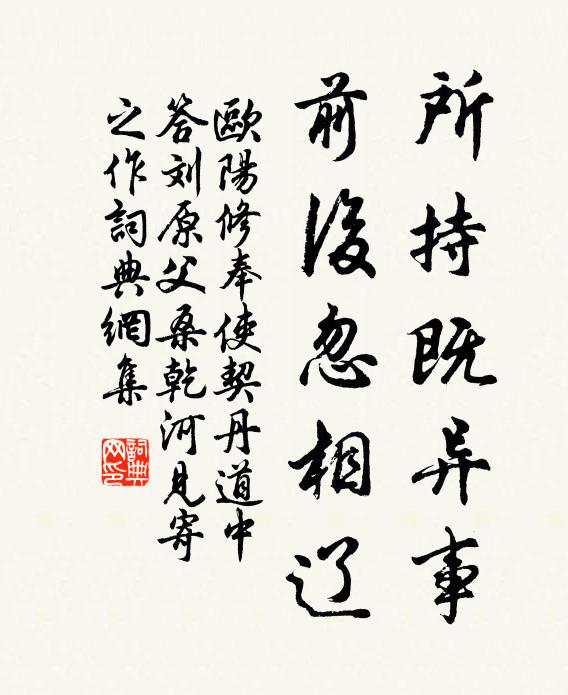 所持既异事
前後忽相辽
歐陽修奉使契丹道中
答刘原父桑乾河見寄
之作詞典網集
詞典
网印